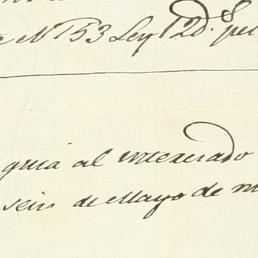 Nº 153 Ley 12 d.
guia al interesado
seis de Mayo de m